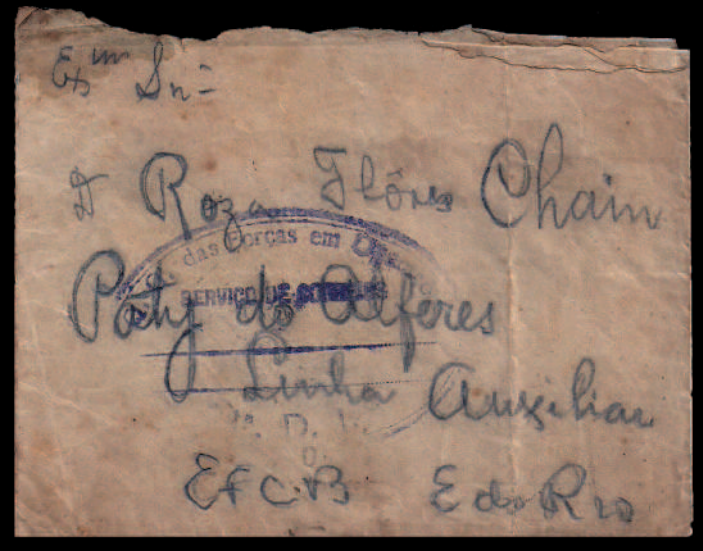 Exm Sn=
D Roza Flôres Chain
das Forças em
SERVIÇO DE
Paty do Alferes
Linha Auxiliar
D.
EFCB E do Rio